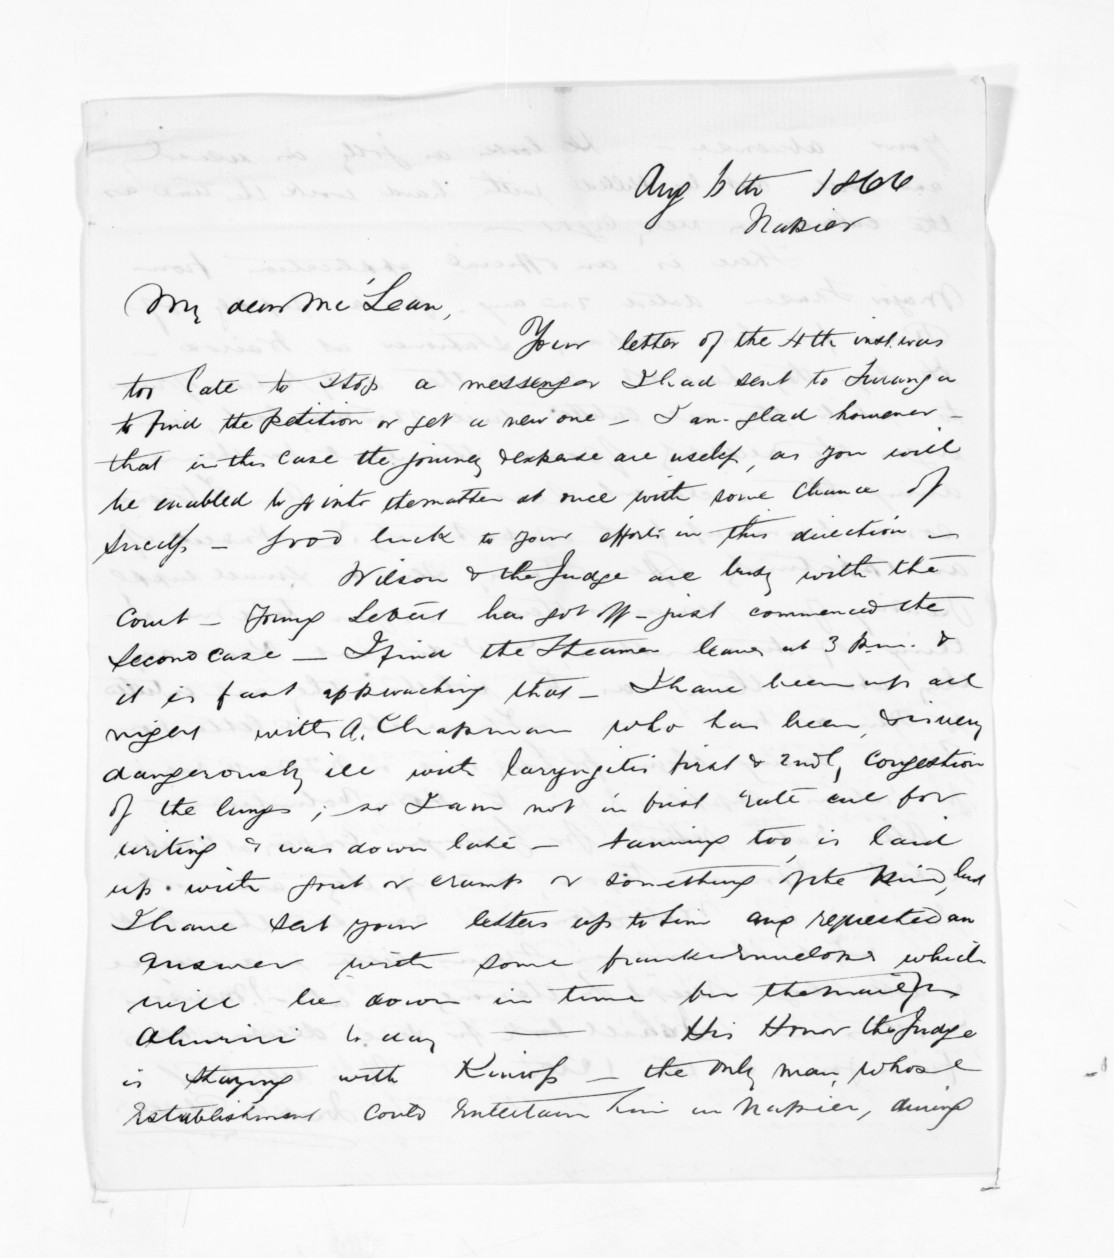 Aug 6th 1866
Napier
My dear McLean,
Your letter of the 4th inst. was
too late to stop a messenger I had sent to Turanga
to find the petition or get a new one - I am glad however -
that in this case the journey & expense are useless, as you will
be enabled to go into the matter at once with some chance of
success - Good luck to your efforts in this direction -
Wilson & the Judge are busy with the
Court - Young has got off - just commenced the
second case - I find the Steamer leaves at 3 p.m. &
it is fast approaching that - I have been up all
night with A. Chapman who has been, & is very
dangerously ill with laryngitis first & 2ndly congestion
of the lungs; so I am not in first rate cue for
writing & was down late - too, is laid
up with gout or cramp or something of the kind, but
I have sent your letters up to him and requested an
answer with some franked envelopes which
will be down in time for the mail per
Ahuriri to day - His Honor the Judge
is staying with Kinross - the only man, whose
Establishment could entertain him in Napier, during